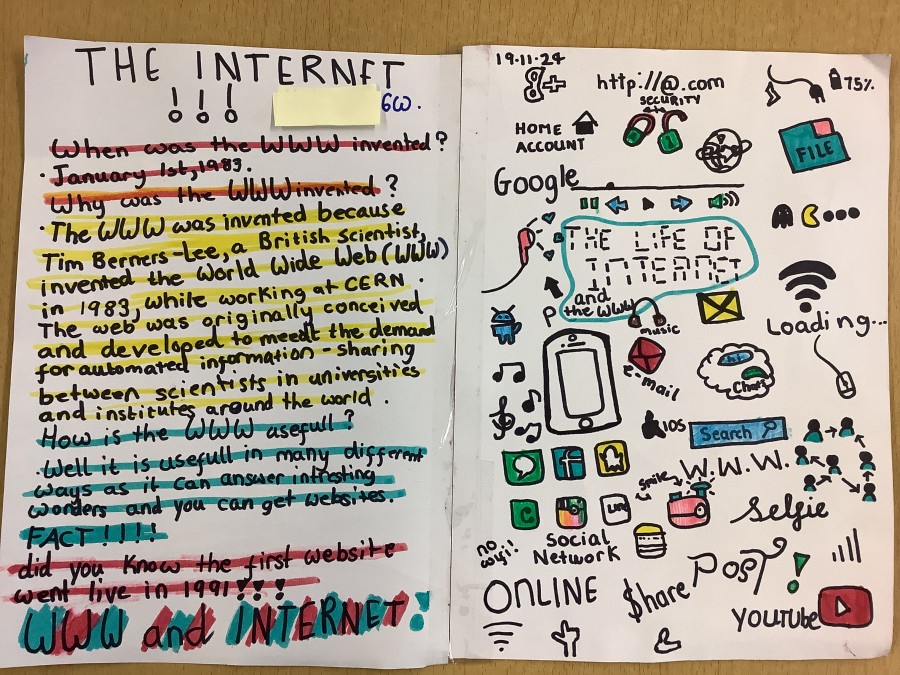 THE INTERNET
!!!
6W.
When was the WWW invented?
· January 1st, 1983.
Why was the WWW invented?
· The WWW was invented because
Tim Berners-Lee, a British Scientist,
invented the World Wide Web (WWW)
in 1983, while working at CERN.
The web was originally conceived
and developed to meedt the demand
for automated information-sharing
between scientists in universities
and institutes around the world.
How is the WWW usefull?
· Well it is usefull in many different
ways as it can answer intresting
wonders and you can get websites.
FACT!!!!
did you know the first website
went live in 1991!!!
WWW and INTERNET!
19.11.24
8+
http://@.com
75%
SECURITY
HOME
ACCOUNT
FILE
Google
THE LIFE OF
INTERNET
and
the WWW
P
music
Loading...
e-mail
Hi
Chats
IOS
Search
W.W.W.
smile
C
LINE
selfie
no
wifi!
Social
Network
POST!
ONLINE
$hare
YOUTUBE